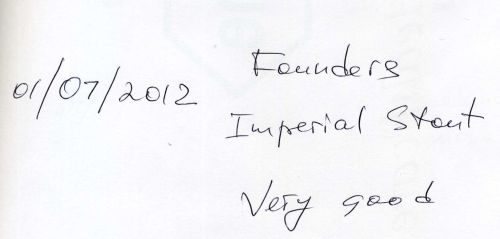 01/07/2012
Founders
Imperial Stout
Very good